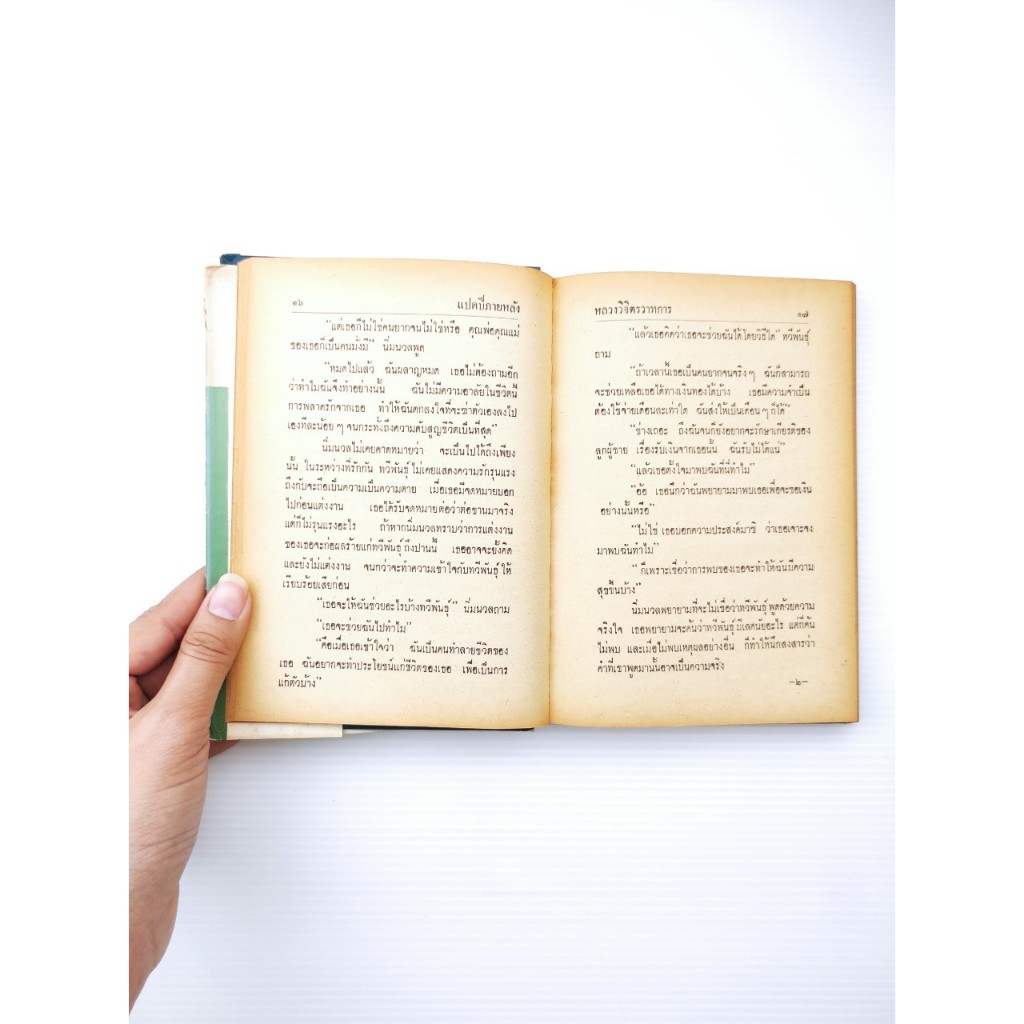 ๑๖ แปดปีภายหลัง
"แต่เธอก็ไม่ใช่คนยากจนไม่ใช่หรือ คุณพ่อคุณแม่
ของเธอก็เป็นคนมั่งมี" นิ่มนวลพูด
"หมดไปแล้ว ฉันผลาญหมด เธอไม่ต้องถามอีก
ว่าทำไมฉันจึงทำอย่างนั้น ฉันไม่มีความอาลัยในชีวิตนี้
การพลาดรักจากเธอ ทำให้ฉันตกลงใจที่จะฆ่าตัวเองลงไป
เองทีละน้อย ๆ จนกระทั่งถึงความดับสูญชีวิตเป็นที่สุด"
นิ่มนวลไม่เคยคาดหมายว่า จะเป็นไปได้ถึงเพียง
นั้น ในระหว่างที่รักกัน ทวีพันธุ์ไม่เคยแสดงความรักรุนแรง
ถึงกับจะถือเป็นความเป็นความตาย เมื่อเธอมีจดหมายบอก
ไปก่อนแต่งงาน เธอได้รับจดหมายต่อว่าต่อขานมาจริง
แต่ก็ไม่รุนแรงอะไร ถ้าหากนิ่มนวลทราบว่าการแต่งงาน
ของเธอจะก่อผลร้ายแก่ทวีพันธุ์ถึงปานนี้ เธออาจจะยั้งคิด
และยังไม่แต่งงาน จนกว่าจะทำความเข้าใจกับทวีพันธุ์ให้
เรียบร้อยเสียก่อน
"เธอจะให้ฉันช่วยอะไรบ้างทวีพันธุ์" นิ่มนวลถาม
"เธอจะช่วยฉันไปทำไม"
"คือเมื่อเธอเข้าใจว่า ฉันเป็นคนทำลายชีวิตของ
เธอ ฉันอยากจะทำประโยชน์แก่ชีวิตของเธอ เพื่อเป็นการ
แก้ตัวบ้าง"
หลวงวิจิตรวาทการ ๑๗
"แล้วเธอคิดว่าเธอจะช่วยฉันได้โดยวิธีใด" ทวีพันธุ์
ถาม
"ถ้าเวลานี้เธอเป็นคนยากจนจริง ๆ ฉันก็สามารถ
จะช่วยเหลือเธอได้ทางเงินทองได้บ้าง เธอมีความจำเป็น
ต้องใช้จ่ายเดือนละเท่าใด ฉันส่งให้เป็นเดือน ๆ ก็ได้"
"ช่างเถอะ ถึงฉันจนก็ยังอยากจะรักษาเกียรติของ
ลูกผู้ชาย เรื่องรับเงินจากเธอนั้น ฉันรับไม่ได้แน่"
"แล้วเธอตั้งใจมาพบฉันที่นี่ทำไม"
"อ้อ เธอนึกว่าฉันพยายามมาพบเธอเพื่อจะขอเงิน
อย่างนั้นหรือ"
"ไม่ใช่ เธอบอกความประสงค์มาซิ ว่าเธอเจาะจง
มาพบฉันทำไม"
"ก็เพราะเชื่อว่าการพบของเธอจะทำให้ฉันมีความ
สุขขึ้นบ้าง"
นิ่มนวลพยายามที่จะไม่เชื่อว่าทวีพันธุ์พูดด้วยความ
จริงใจ เธอพยายามจะค้นว่าทวีพันธุ์มีเลศนัยอะไร แต่ก็ค้น
ไม่พบ และเมื่อไม่พบเหตุผลอย่างอื่น ก็ทำให้นึกสงสารว่า
คำที่เขาพูดมานั้นอาจเป็นความจริง
—๒—